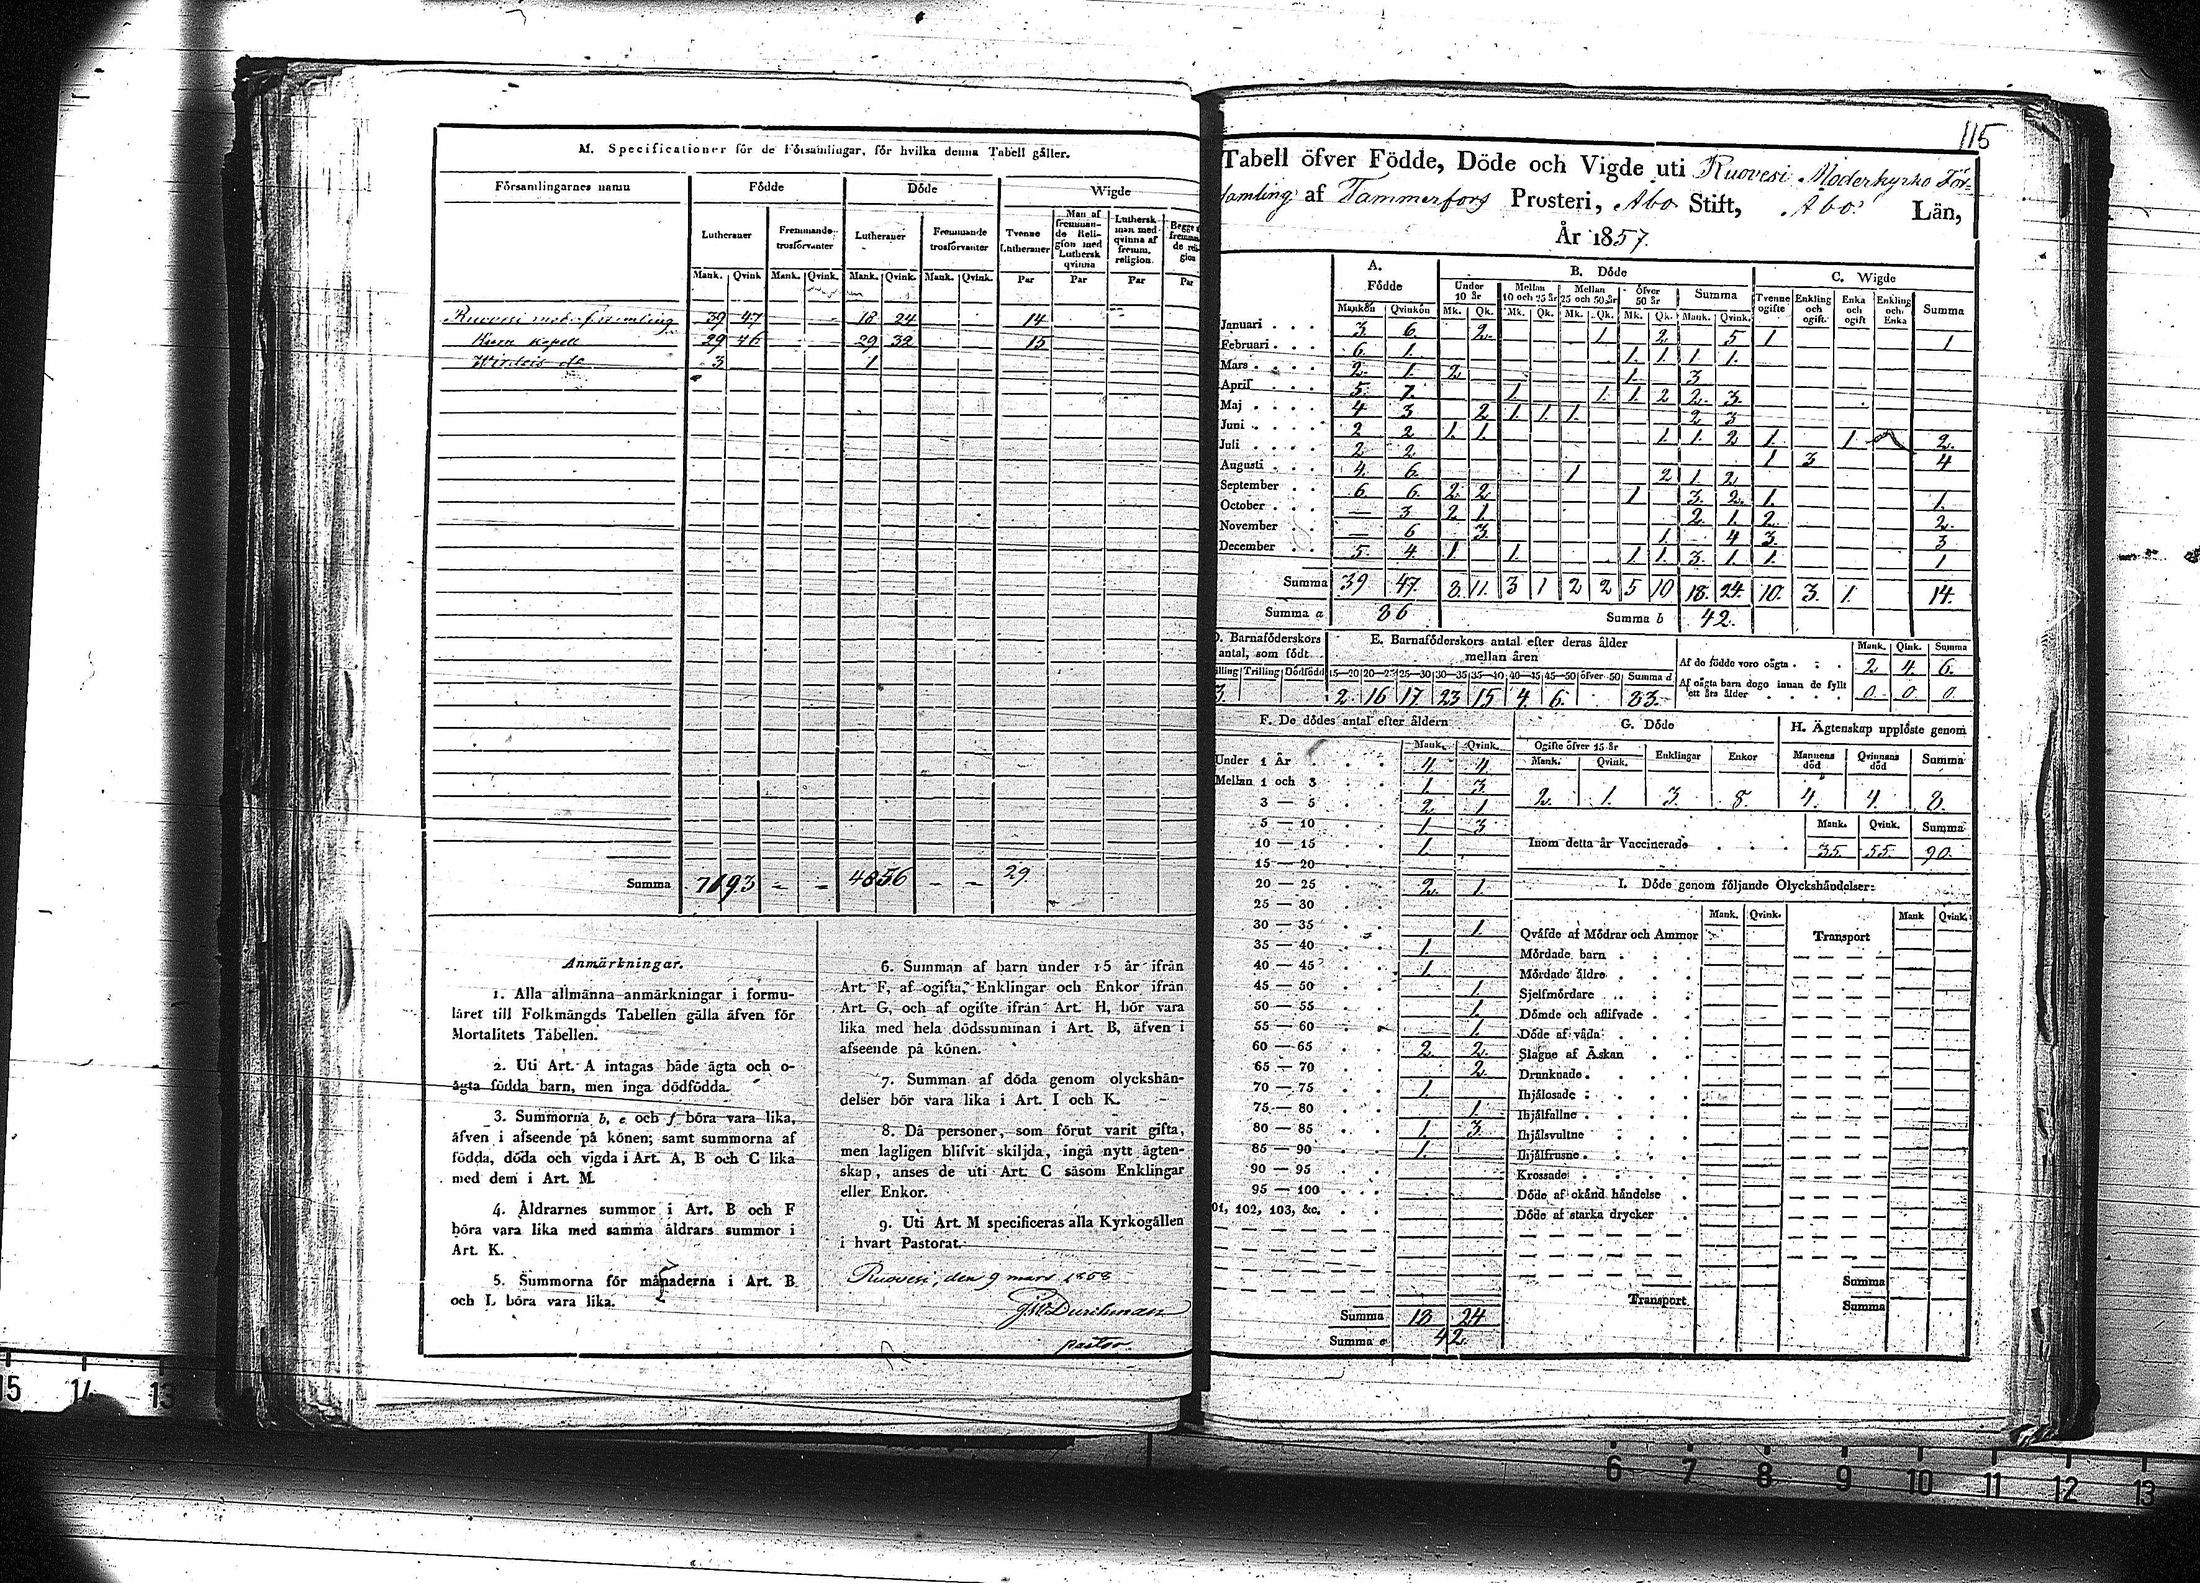 M. Specificationer för de Församlingar, för hvilka denna Tabell gäller.
Församlingarnes namn Födde Döde Wigde
Lutheraner Fremmande trosförvanter Lutheraner Fremmande trosförvanter Tvenne Lutheraner Man af fremmande Religion med Luthersk qvinna Luthersk man med qvinna af fremm. religion.
Mank. Qvink Mank. Qvink. Mank. Qvink. Mank. Qvink. Par Par Par Par
Ruovesi mod. församling 39 47 18 24 14
Kuru Kapell 29 46 29 32 15
Wirdois do 3 1
Summa 71 93 - - 48 56 - - 29
Anmärkningar.
1. Alla allmänna anmärkningar i formu-
läret till Folkmängds Tabellen gälla äfven för
Mortalitets Tabellen.
2. Uti Art. A intagas både ägta och o-
ägta födda barn, men inga dödfödda.
3. Summorna b, e och f böra vara lika,
äfven i afseende på könen; samt summorna af
födda, döda och vigda i Art. A, B och C lika
med dem i Art. M.
4. Åldrarnes summor i Art. B och F
böra vara lika med samma åldrars summor i
Art. K.
5. Summorna för månaderna i Art. B
och L böra vara lika.
6. Summan af barn under 15 år ifrån
Art. F, af ogifta, Enklingar och Enkor ifrån
Art. G, och af ogifte ifrån Art. H, bör vara
lika med hela dödssumman i Art. B, äfven i
afseende på könen.
7. Summan af döda genom olyckshän-
delser bör vara lika i Art. I och K.
8. Då personer, som förut varit gifta,
men lagligen blifvit skiljda, ingå nytt ägten-
skap, anses de uti Art. C såsom Enklingar
eller Enkor.
9. Uti Art. M specificeras alla Kyrkogällen
i hvart Pastorat.
Ruovesi, den 9 mars 1858
pastor.
115
Tabell öfver Födde, Döde och Vigde uti Ruovesi Moderkyrko För-
samling af Tammerfors Prosteri, Abo Stift, Abo Län,
År 1857.
A. Födde B. Döde C. Wigde
Under 10 år Mellan 10 och 25 år Mellan 25 och 50 år Öfver 50 år Summa Tvenne ogifte Enkling och ogift Enka och ogift Enkling och Enka Summa
Mankön Qvinkön Mk. Qk. Mk. Qk. Mk. Qk. Mk. Qk. Mank. Qvink.
Januari 3 6 2 1 2 5 1 1
Februari 6 1 1 1 1 1
Mars 2 1 2 1 3
April 5 7 1 1 1 2 2 3
Maj 4 3 2 1 1 1 2 3
Juni 2 2 1 1 1 1 2 1 1 2
Juli 2 2 1 3 4
Augusti 4 6 1 2 1 2
September 6 6 2 2 1 3 2 1 1
October — 3 2 1 2 1 2 2
November — 6 3 1 4 3 3
December 5 4 1 1 1 1 3 1 1 1
Summa 39 47 8 11 3 1 2 2 5 10 18 24 10 3 1 14
Summa a 86 Summa b 42
D. Barnaföderskors antal, som födt
Trilling Dödfödd
3
E. Barnaföderskors antal efter deras ålder mellan åren
15—20 20—25 25—30 30—35 35—40 40—45 45—50 öfver 50 Summa d
2 16 17 23 15 4 6 83
Mank. Qink. Summa
Af de födde voro oägta 2 4 6
Af oägta barn dogo innan de fyllt ett års ålder 0 0 0
F. De dödes antal efter åldern
Mank. Qvink.
Under 1 År 4 4
Mellan 1 och 3 1 3
3 — 5 2 1
5 — 10 1 3
10 — 15 1
15 — 20
20 — 25 2 1
25 — 30
30 — 35 1
35 — 40 1
40 — 45 1
45 — 50 1
50 — 55 1
55 — 60 1
60 — 65 2 2
65 — 70 2
70 — 75 1
75 — 80 1
80 — 85 1 3
85 — 90 1
90 — 95
95 — 100
01, 102, 103, &c.
Summa 18 24
Summa e 42
G. Döde
Ogifte öfver 15 år Enklingar Enkor
Mank. Qvink.
2 1 3 8
H. Ägtenskap upplöste genom
Mannens död Qvinnans död Summa
4 4 8
Mank. Qvink. Summa
Inom detta år Vaccinerade 35 55 90
I. Döde genom följande Olyckshändelser:
Mank. Qvink. Mank Qvink.
Qväfde af Mödrar och Ammor Transport
Mördade barn
Mördade äldre
Sjelfmördare
Dömde och aflifvade
Döde af våda
Slagne af Åskan
Drunknade
Ihjälosade
Ihjälfallne
Ihjälsvultne
Ihjälfrusne
Krossade
Döde af okänd händelse
Döde af starka drycker
Transport Summa
Summa